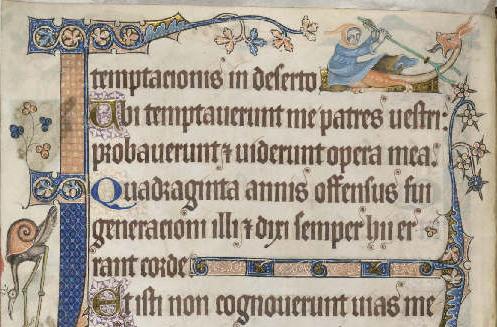 temptacionis in deserto
Ubi temptauerunt me patres uestri:
probauerunt ⁊ uiderunt opera mea.
Quadraginta annis offensus fui
generacioni illi ⁊ dixi semper hii er
rant corde
Et isti non cognouerunt uias me